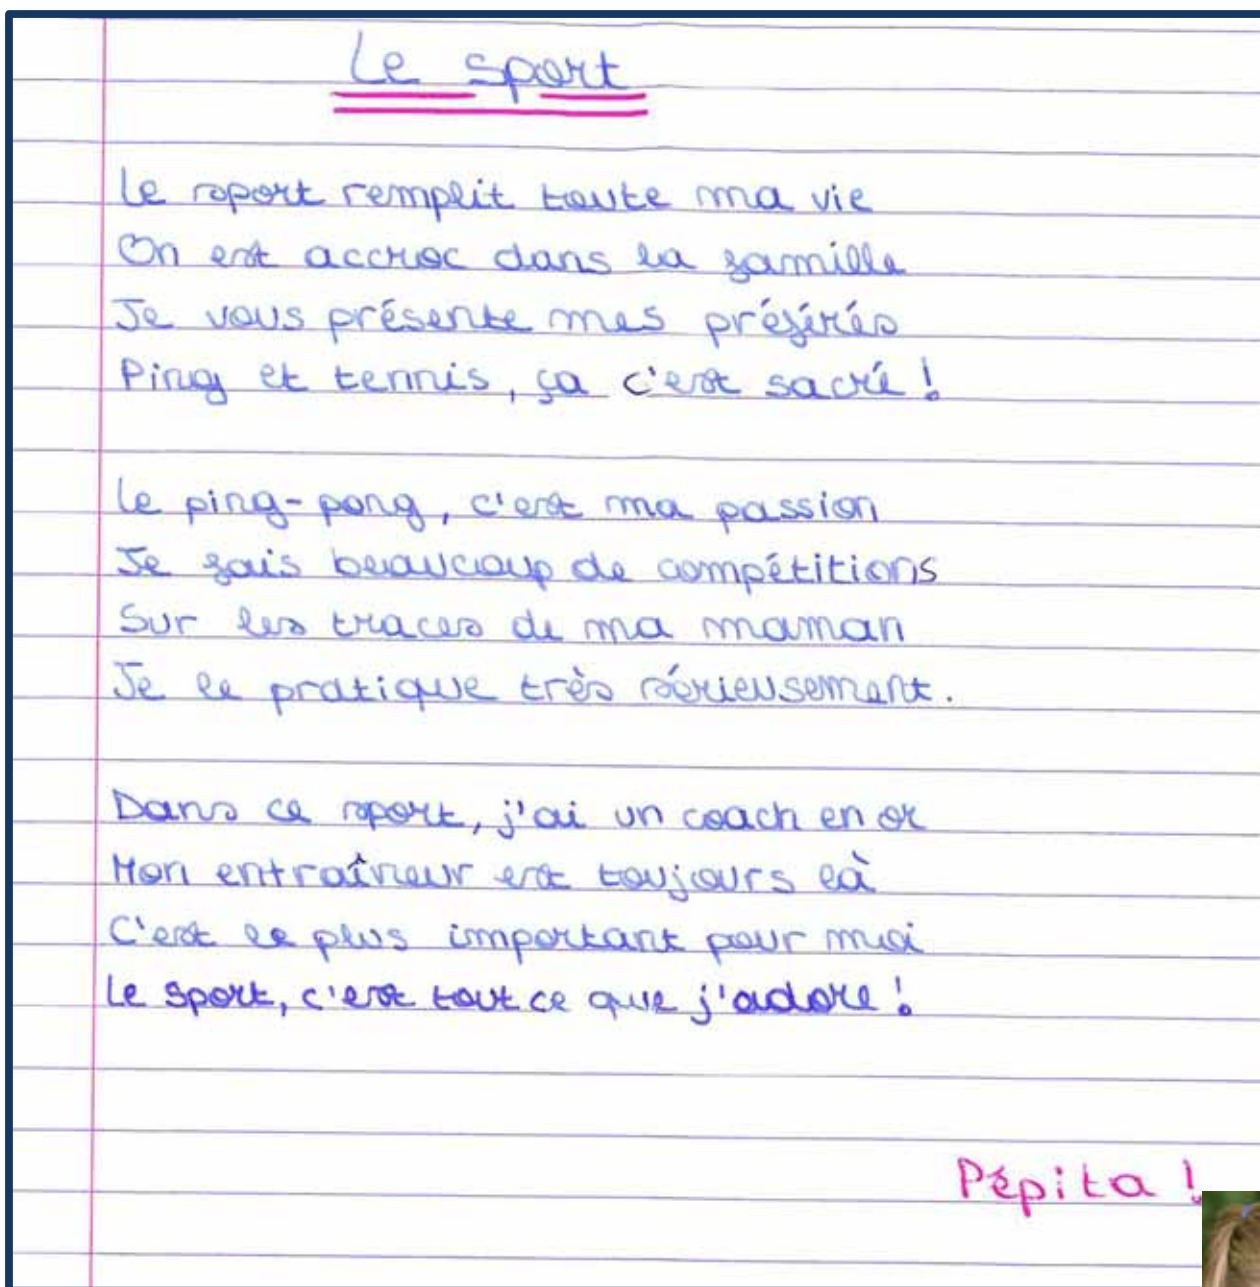 Le sport
Le sport remplit toute ma vie
On est accroc dans la famille
Je vous présente mes préférés
Ping et tennis, ça c'est sacré !
Le ping-pong, c'est ma passion
Je fais beaucoup de compétitions
Sur les traces de ma maman
Je le pratique très sérieusement.
Dans ce sport, j'ai un coach en or
Mon entraîneur est toujours là
C'est le plus important pour moi
Le sport, c'est tout ce que j'adore !
Pépita !